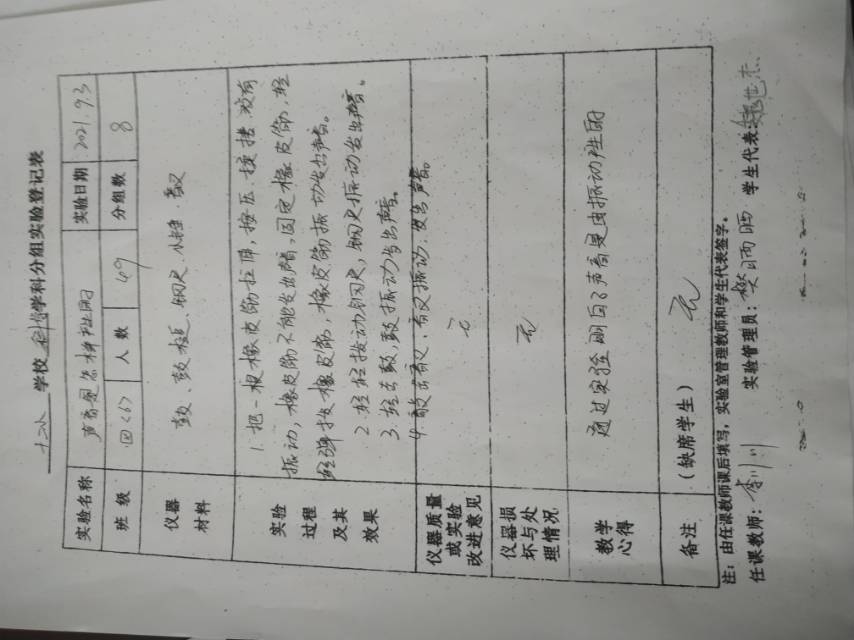 十二小 学校 科学 学科分组实验登记表
实验名称 声音是怎样产生的 实验日期 2021.9.3
班级 四<6> 人数 49 分组数 8
仪器材料 鼓、鼓槌、钢尺、小锤、音叉
实验过程及其效果
1. 把一根橡皮筋拉伸，按压、揉搓、没有
振动，橡皮筋不能发出声音，固定橡皮筋，轻
轻弹拨橡皮筋，橡皮筋振动发出声音。
2. 轻轻拨动钢尺，钢尺振动发出声音。
3. 轻击鼓，鼓振动发出声音。
4. 敲击音叉，音叉振动，发出声音。
仪器质量或实验改进意见 无
仪器损坏与处理情况 无
教学心得 通过实验明白了声音是由振动产生的
备注 （缺席学生） 无
注：由任课教师课后填写，实验室管理教师和学生代表签字。
任课教师：李川川 实验管理员：樊丽丽 学生代表：魏世杰